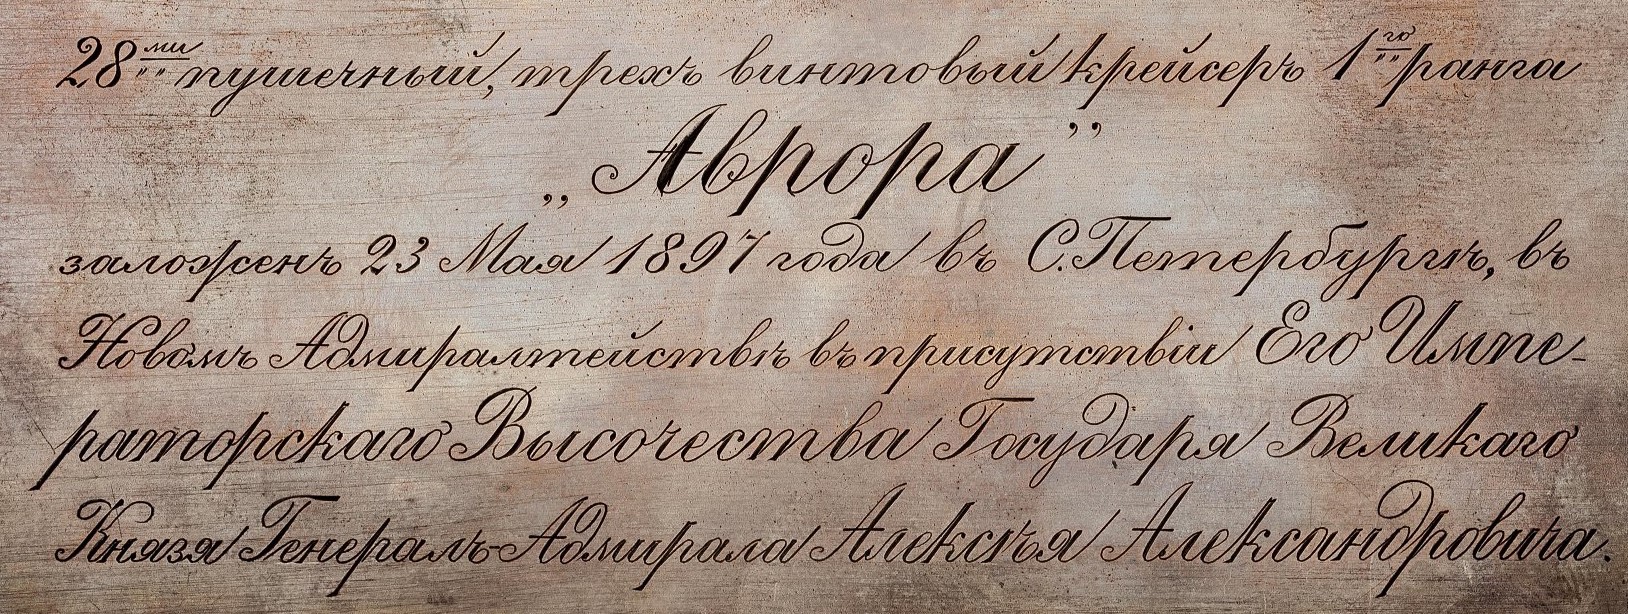 28ми пушечный, трехъ винтовый крейсеръ 1го ранга
„Аврора”
заложенъ 23 Мая 1897 года въ С.Петербургѣ, въ
Новомъ Адмиралтействѣ въ присутствіи Его Импе-
раторскаго Высочества Государя Великаго
Князя Генералъ-Адмирала Алексѣя Александровича.